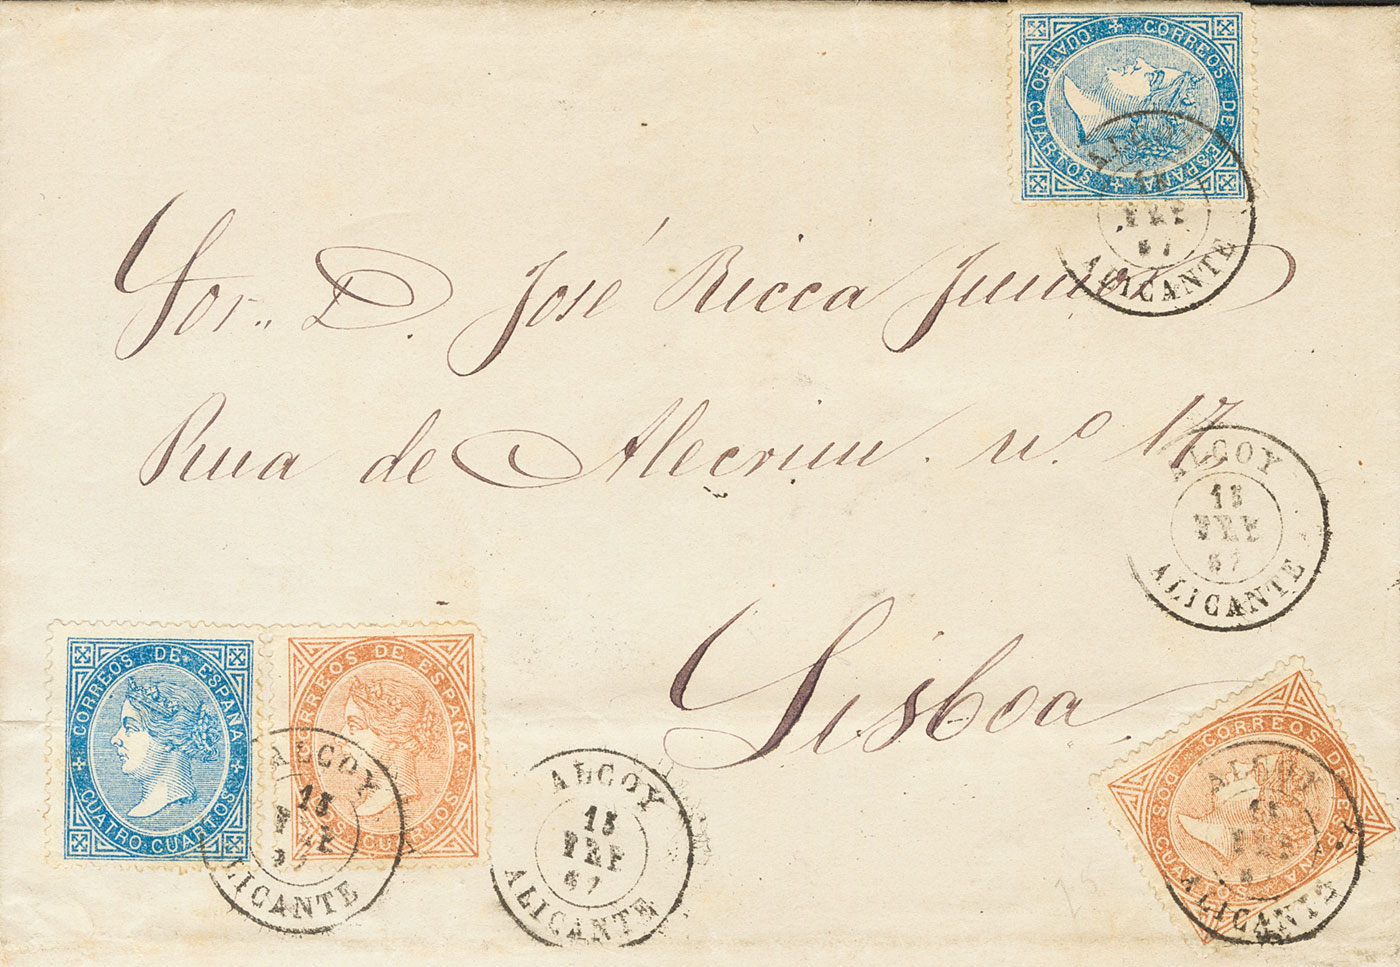 CORREOS DE ESPAÑA
CUATRO CUARTOS
ALCOY
FEB
67
ALICANTE
Sor. D. José Ricca Junior
Rua de Alecrim nº 17
ALCOY
15
FEB
67
ALICANTE
Lisboa
CORREOS DE ESPAÑA
CUATRO CUARTOS
CORREOS DE ESPAÑA
CUARTOS
ALCOY
15
FEB
67
ALICANTE
ALCOY
15
FEB
67
ALICANTE
CORREOS DE ESPAÑA
DOS CUARTOS
ALCOY
FEB
ALICANTE